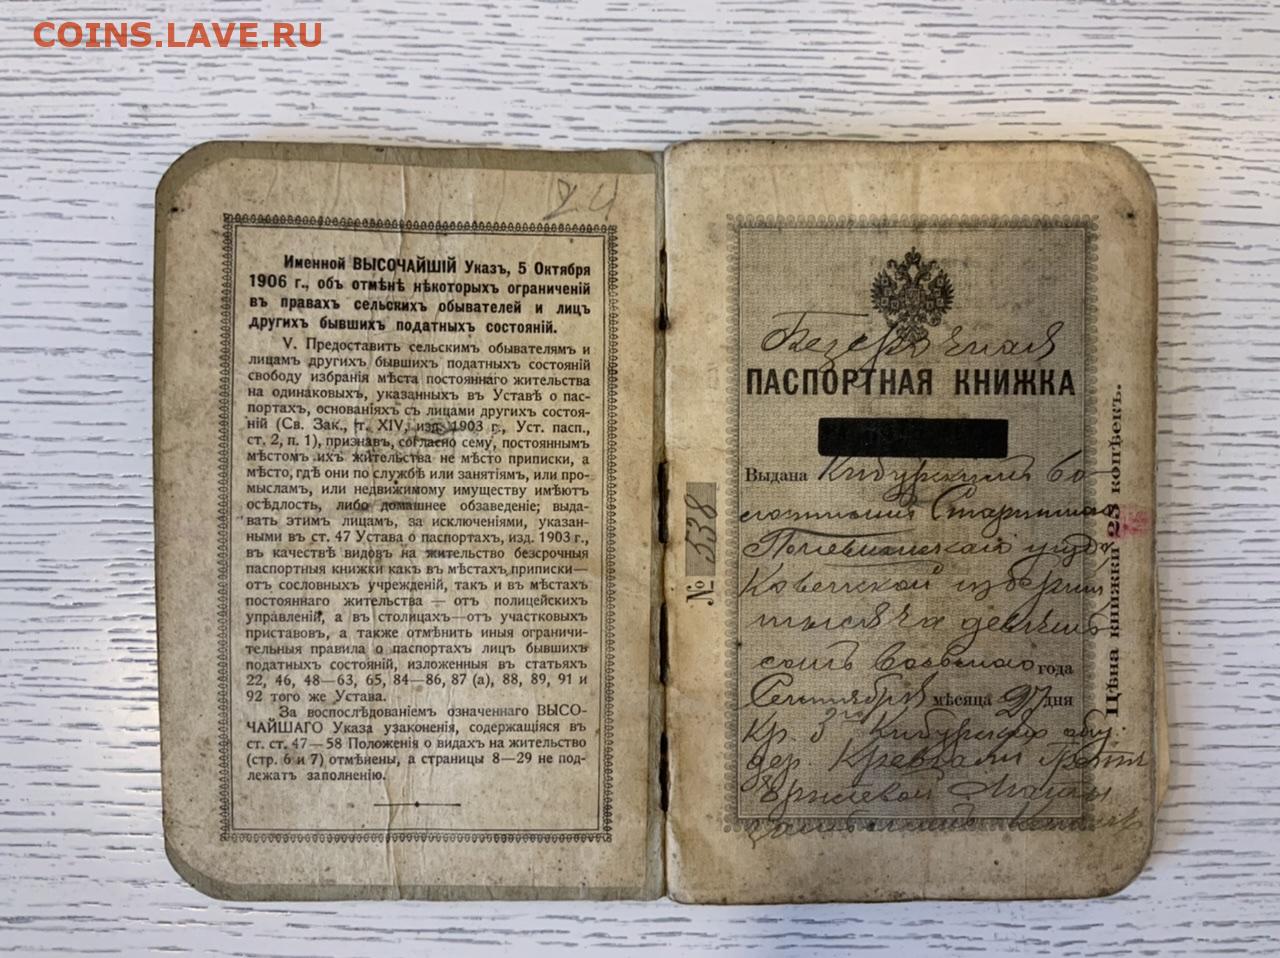 COINS.LAVE.RU
24
Именной ВЫСОЧАЙШІЙ Указъ, 5 Октября
1906 г., объ отмѣнѣ нѣкоторыхъ ограниченій
въ правахъ сельскихъ обывателей и лицъ
другихъ бывшихъ податныхъ состояній.
V. Предоставить сельскимъ обывателямъ и
лицамъ другихъ бывшихъ податныхъ состояній
свободу избранія мѣста постояннаго жительства
на одинаковыхъ, указанныхъ въ Уставѣ о пас-
портахъ, основаніяхъ съ лицами другихъ состоя-
ній (Св. Зак., т. XIV, изд. 1903 г., Уст. пасп.,
ст. 2, п. 1), признавъ, согласно сему, постояннымъ
мѣстомъ ихъ жительства не мѣсто приписки, а
мѣсто, гдѣ они по службѣ или занятіямъ, или про-
мысламъ, или недвижимому имуществу имѣютъ
осѣдлость, либо домашнее обзаведеніе; выда-
вать этимъ лицамъ, за исключеніями, указан-
ными въ ст. 47 Устава о паспортахъ, изд. 1903 г.,
въ качествѣ видовъ на жительство безсрочныя
паспортныя книжки какъ въ мѣстахъ приписки—
отъ сословныхъ учрежденій, такъ и въ мѣстахъ
постояннаго жительства — отъ полицейскихъ
управленій, а въ столицахъ—отъ участковыхъ
приставовъ, а также отмѣнить иныя ограничи-
тельныя правила о паспортахъ лицъ бывшихъ
податныхъ состояній, изложенныя въ статьяхъ
22, 46, 48—63, 65, 84—86, 87 (а), 88, 89, 91 и
92 того же Устава.
За воспослѣдованіемъ означеннаго ВЫСО-
ЧАЙШАГО Указа узаконенія, содержащіяся въ
ст. ст. 47—58 Положенія о видахъ на жительство
(стр. 6 и 7) отмѣнены, а страницы 8—29 не под-
лежатъ заполненію.
Безсрочная
ПАСПОРТНАЯ КНИЖКА
Выдана Кибурскимъ во-
лостнымъ Старшиною
уѣзда
Ковенской губерніи
тысяча девятьсотъ
восьмого года
Сентября мѣсяца 27 дня
Кр. Кибурскаго общ.
дер.
№ 538
Цѣна книжки 25 копѣекъ.